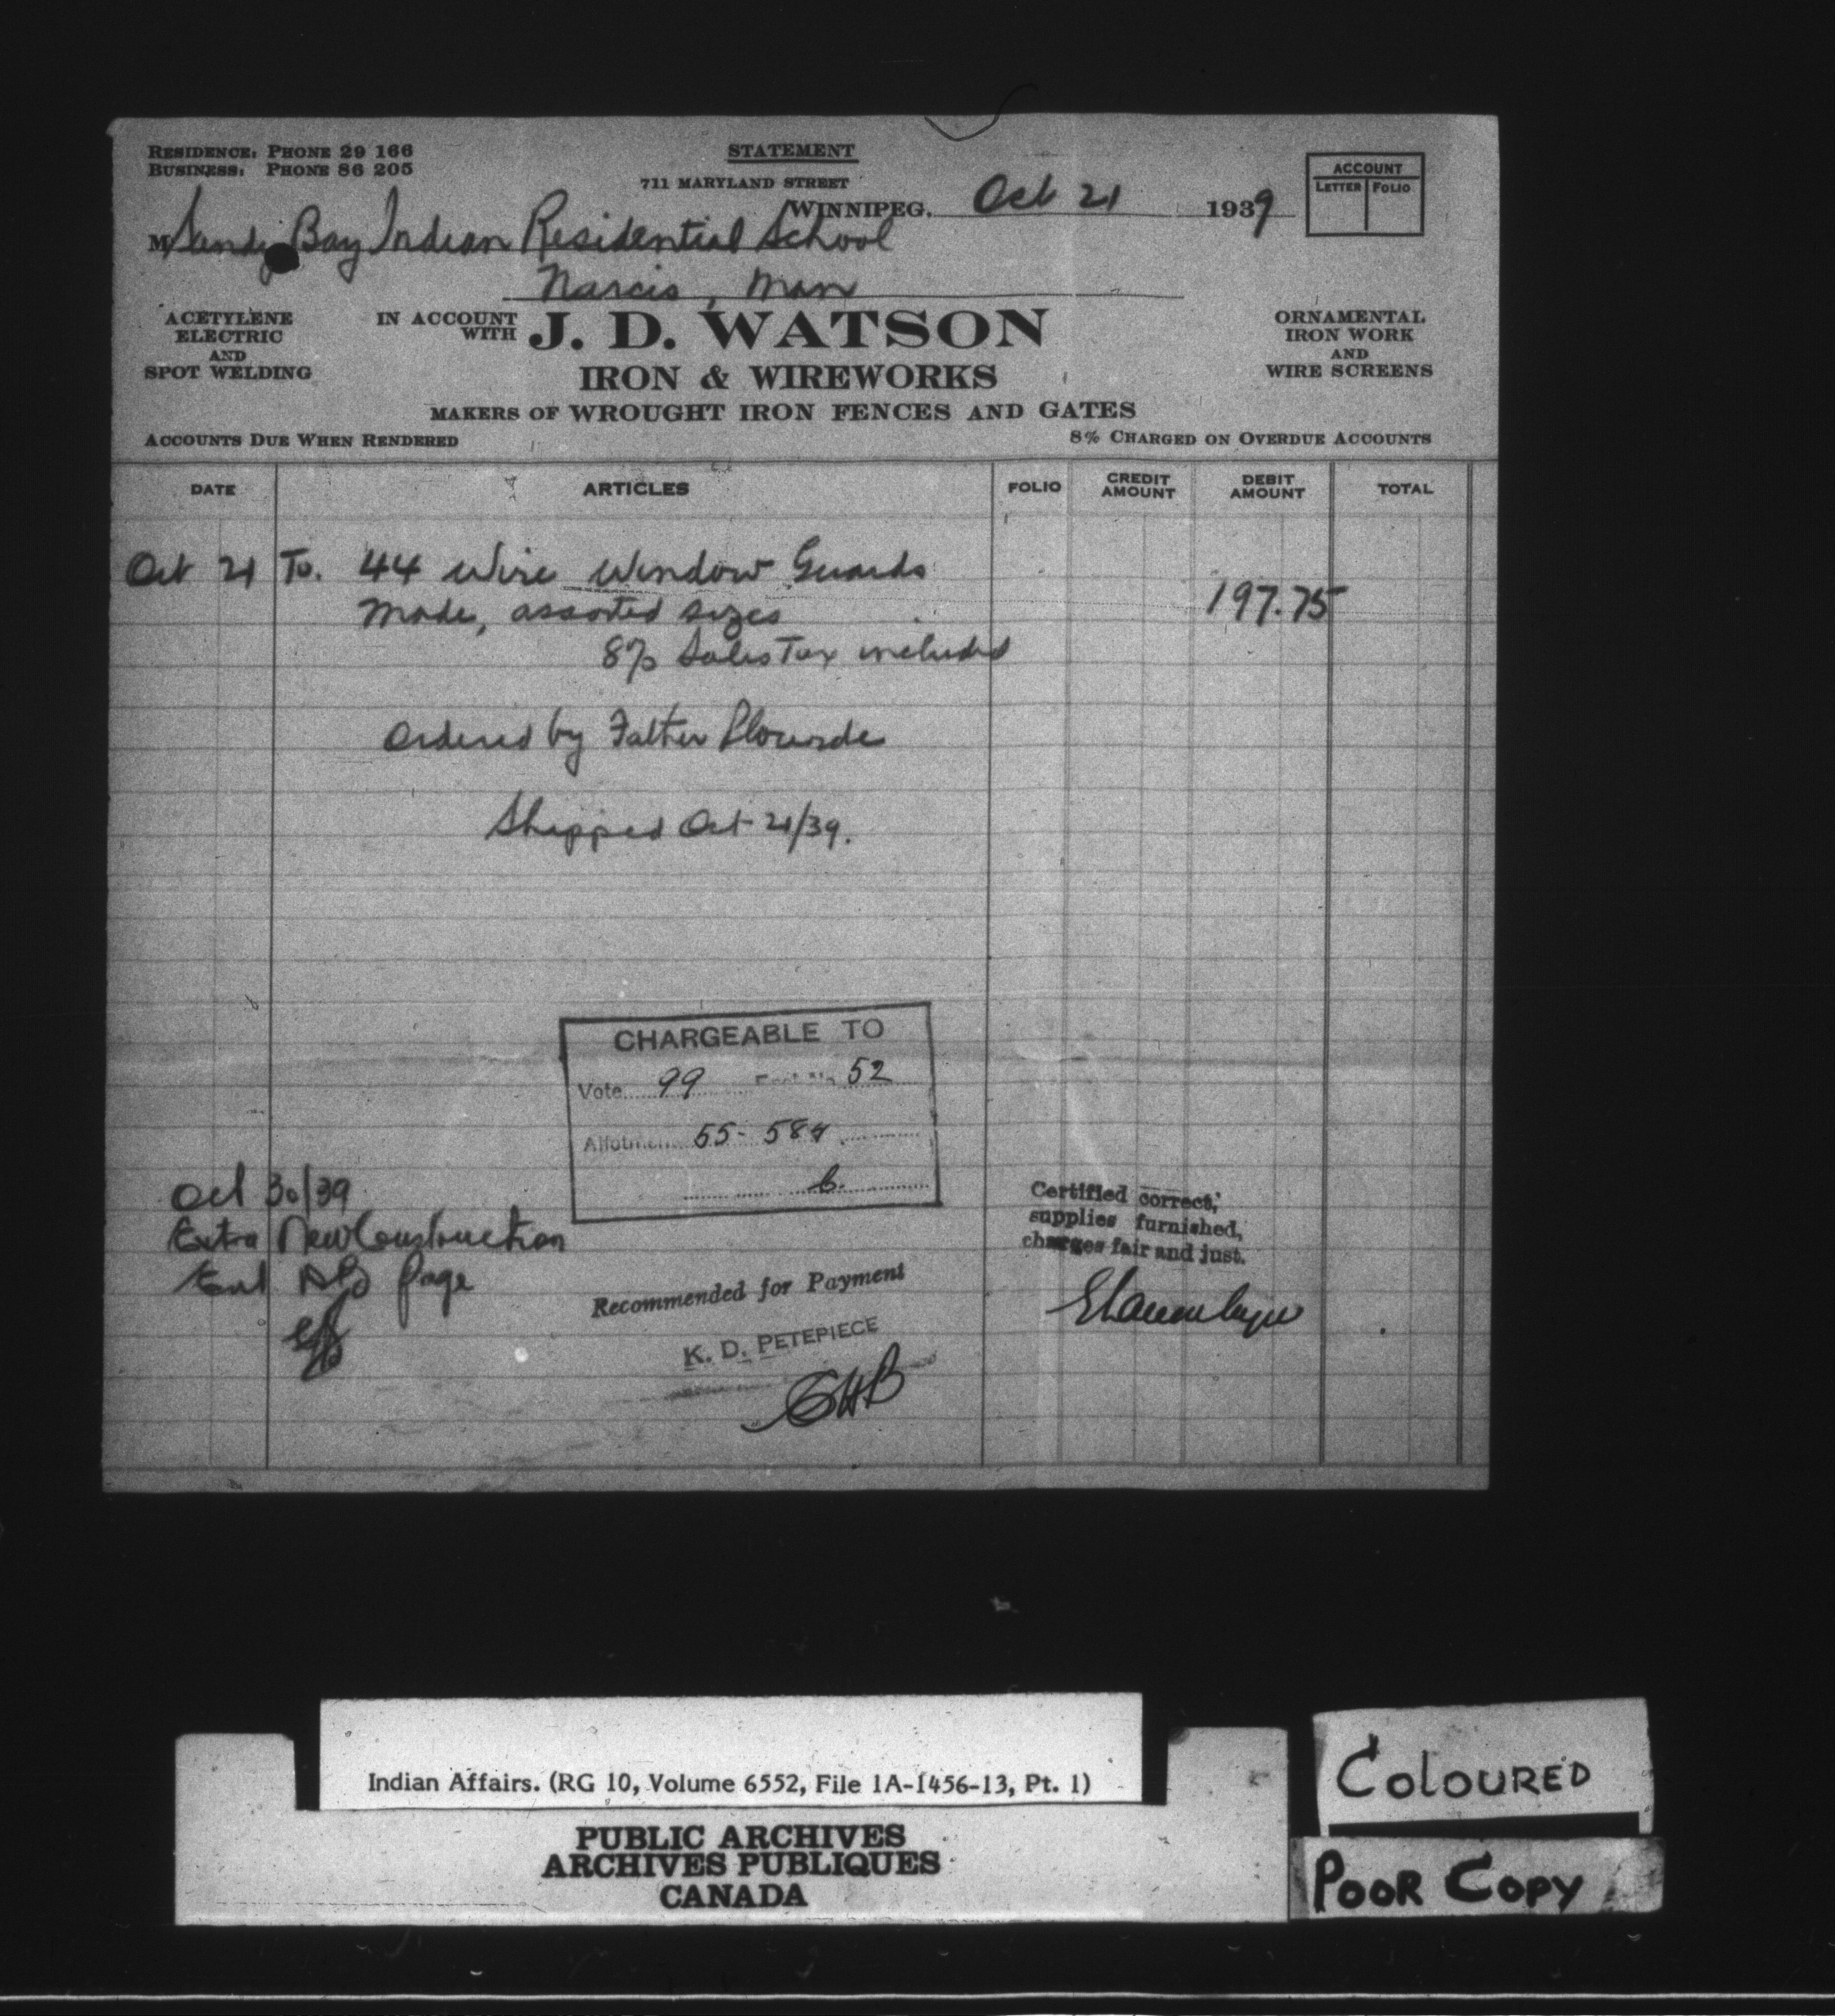 RESIDENCE: PHONE 29 166
BUSINESS: PHONE 86 205
STATEMENT
711 MARYLAND STREET
WINNIPEG, Oct 21 1939
ACCOUNT
LETTER FOLIO
M Sandy Bay Indian Residential School
Narcis, Man
ACETYLENE
ELECTRIC
AND
SPOT WELDING
IN ACCOUNT
WITH
J. D. WATSON
IRON & WIREWORKS
MAKERS OF WROUGHT IRON FENCES AND GATES
ORNAMENTAL
IRON WORK
AND
WIRE SCREENS
ACCOUNTS DUE WHEN RENDERED
8% CHARGED ON OVERDUE ACCOUNTS
DATE ARTICLES FOLIO CREDIT AMOUNT DEBIT AMOUNT TOTAL
Oct 21 To. 44 Wire Window Guards
Made, assorted sizes 197.75
8% Sales Tax included
Ordered by Father Plourde
Shipped Oct 21/39.
CHARGEABLE TO
Vote 99 52
55-584
6.
Oct 30/39
Extra New Construction
page
Recommended for Payment
K. D. PETEPIECE
GHB
Certified correct,
supplies furnished,
charges fair and just.
Indian Affairs. (RG 10, Volume 6552, File 1A-1456-13, Pt. 1)
PUBLIC ARCHIVES
ARCHIVES PUBLIQUES
CANADA
COLOURED
POOR COPY